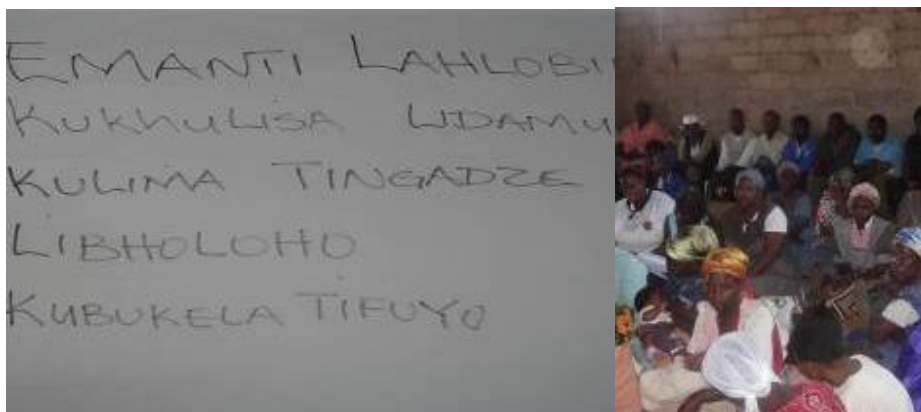 EMANTI LAHLOBI
KUKHULISA LIDAMU
KULIMA TINGADZE
LIBHOLOHO
KUBUKELA TIFUYO